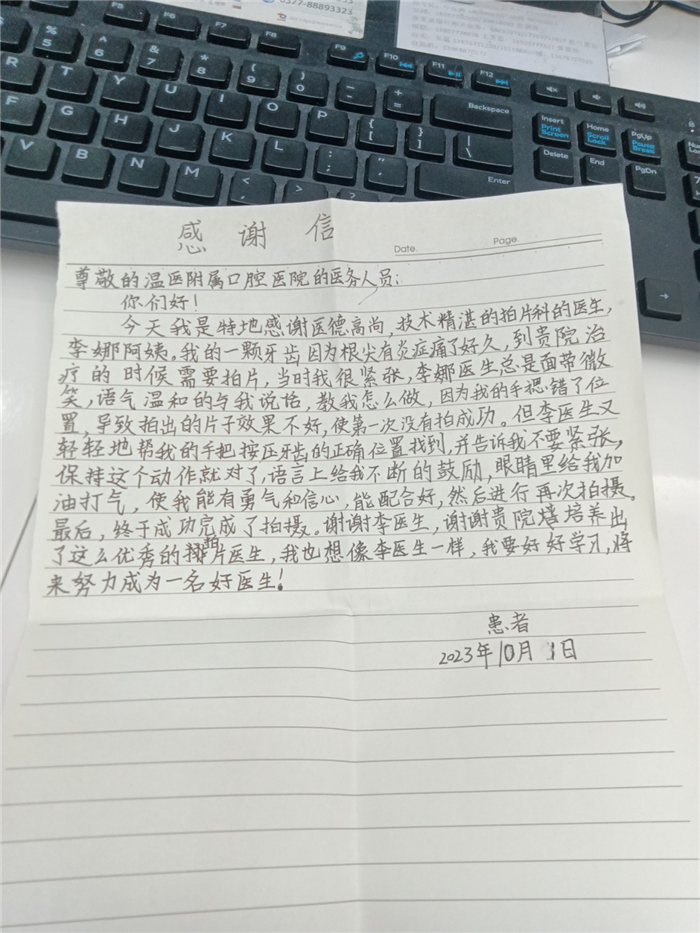 0577-88893323
F5
F6
F7
F8
F9
F10
F11
F12
%
5
^
6
&
7
*
8
(
9
)
0
_
-
+
=
Backspace
Insert
Print Screen
Home
Scroll Lock
PgUp
Pause Break
Num Lock
R
T
Y
U
I
O
P
{
[
}
]
|
\
Delete
End
PgDn
F
G
H
J
K
L
:
;
"
'
Enter
V
B
N
M
<
,
>
.
?
/
感谢信
Date.
Page.
尊敬的温医附属口腔医院的医务人员:
你们好!
今天我是特地感谢医德高尚,技术精湛的拍片科的医生,
李娜阿姨。我的一颗牙齿因为根尖有炎症痛了好久,到贵院治
疗的时候需要拍片,当时我很紧张,李娜医生总是面带微
笑,语气温和的与我说话,教我怎么做,因为我的手摁错了位
置,导致拍出的片子效果不好,使第一次没有拍成功。但李医生又
轻轻地帮我的手把按压牙齿的正确位置找到,并告诉我不要紧张,
保持这个动作就对了,语言上给我不断的鼓励,眼睛里给我加
油打气,使我能有勇气和信心,能配合好,然后进行再次拍摄。
最后,终于成功完成了拍摄。谢谢李医生,谢谢贵院培养出
了这么优秀的拍片医生,我也想像李医生一样,我要好好学习,将
来努力成为一名好医生!
患者
2023年10月1日